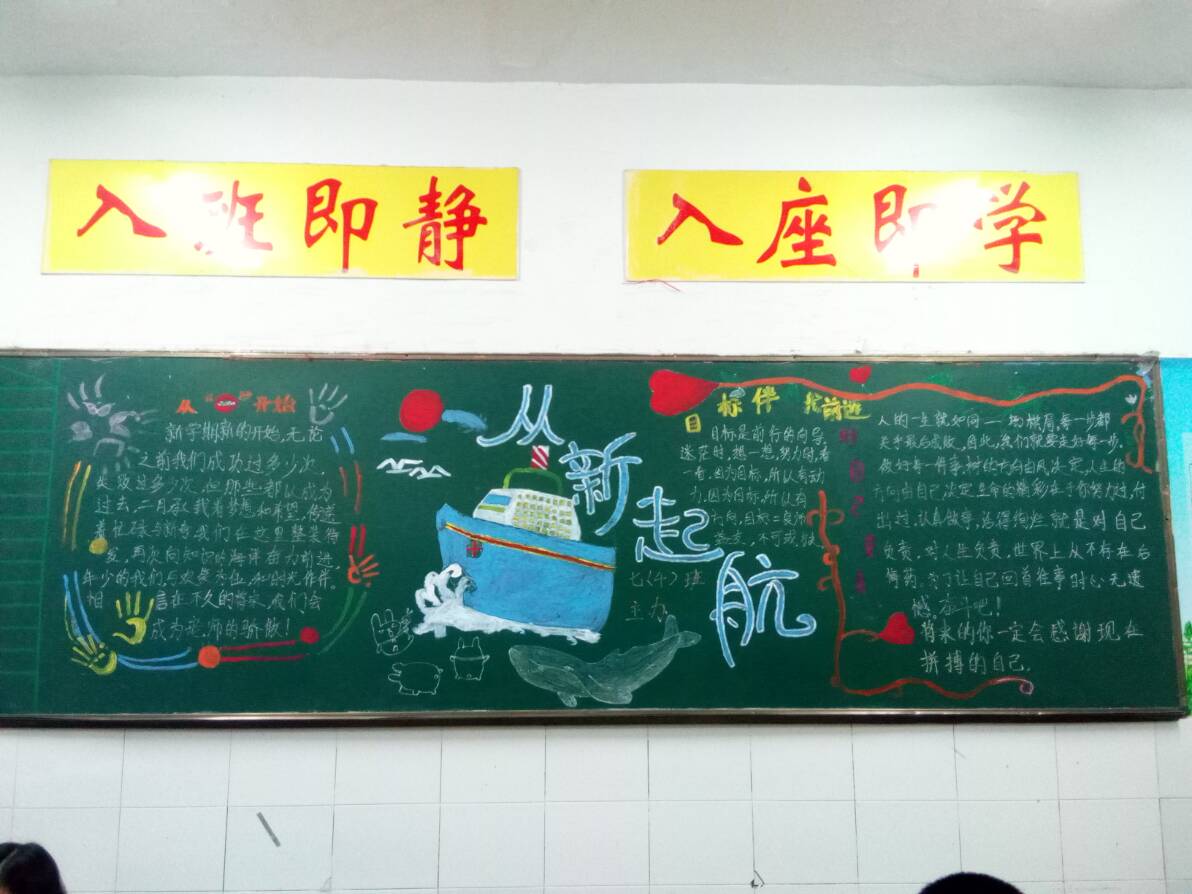 入班即静
入座即学
从“ ”开始
新学期新的开始,无论
之前我们成功过多少次,
失败过多少次,但那些都以成为
过去,二月承载着我们
着忙碌与新奇我们在这里整装待
发,再次向知识的海洋在力前进
年少的我们与欢笑为伍,和时光作伴。
相 信在不久的将来,我们会
成为老师的骄傲!
从新起航
七(4)班
主办
目标伴我前进
目标是前行的向导,
迷茫时,想一想,努力时,看
一看。因为目标,所以有动
力。因为目标,所以有
方向,目标
不可或缺
对自己负责
人的一生就如同一场棋局,每一步都
关乎数后成败,因此,我们就要走好每一步,
做好每一件事,树的方向由风决定,人生的
方向由自己决定生命的精彩在于你努力过,付
出过,认真做事,活得绚烂就是对自己
负责,对人生负责,世界上从不存在后
悔药,为了让自己回首往事时心无遗
憾,奋斗吧!
将来的你一定会感谢现在
拼搏的自己.